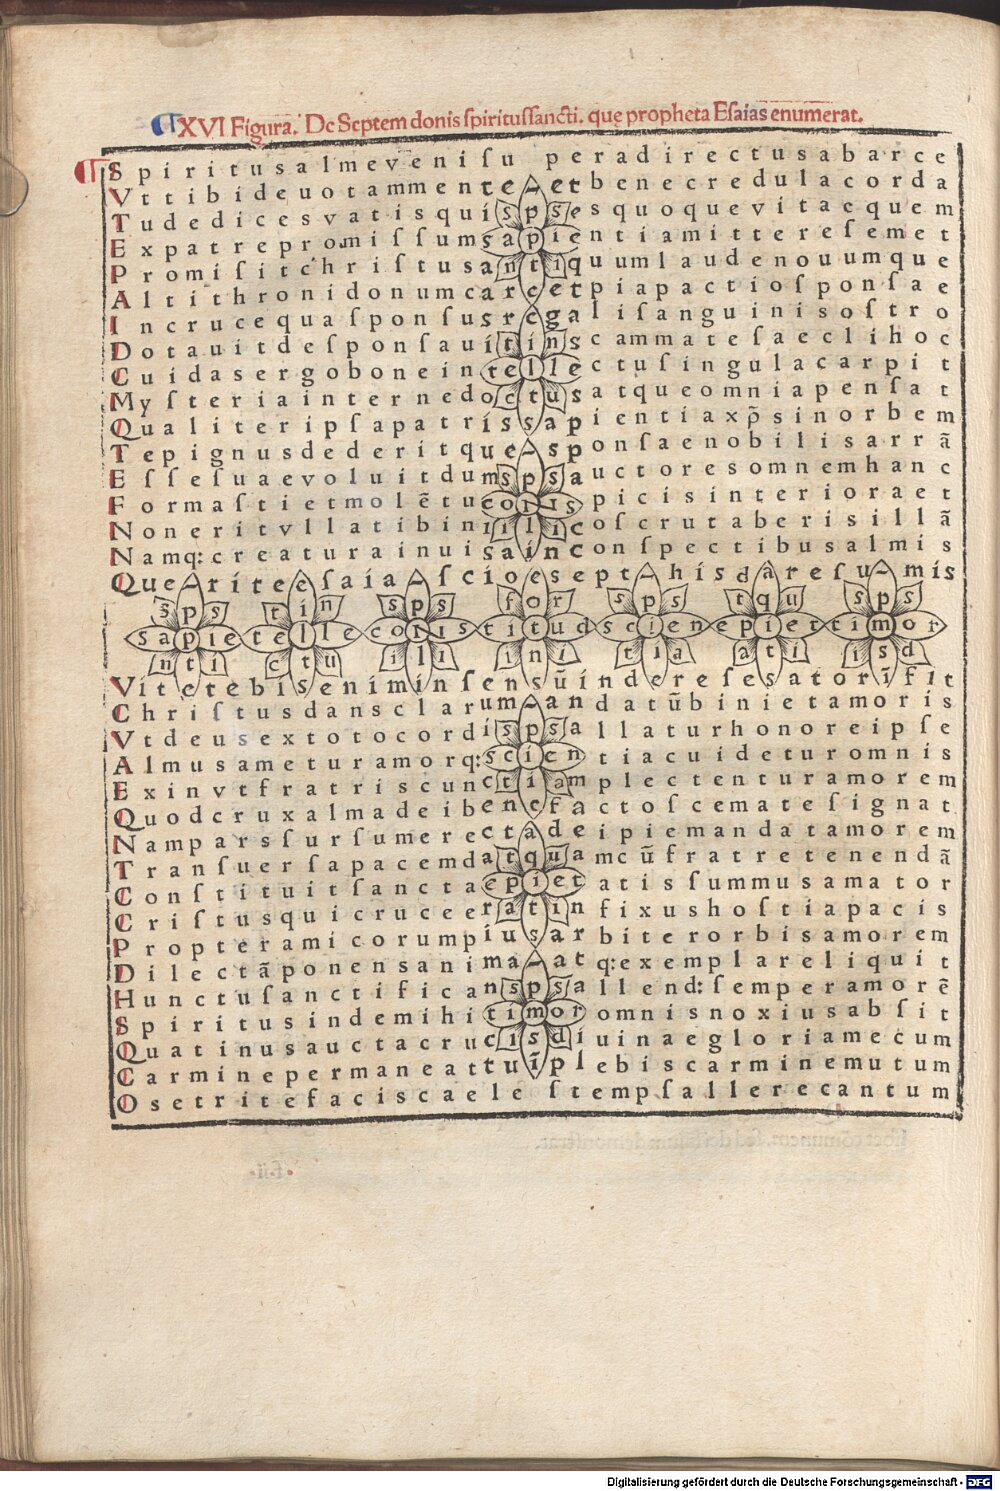 XVI Figura. De Septem donis ſpirituſſancti. quę propheta Eſaias enumerat.
Spiritusalmeveniſu peradirectusabarce
Vttibideuotammente etbenecredulacorda
Tudedicesvatisquiſpſesquoquevitaequem
Expatrepromiſſumsapientiamittereſemet
Promiſitchriſtusantiquumlaudenouumque
Altithronidonumcarcetpiapactioſponſae
Incrucequaſponſusregaliſanguinisoſtro
Dotauitdeſponſauitinscammateſaeclihoc
Cuidasergoboneintellectuſingulacarpit
Myſteriainternedoctusatqueomniapenſat
Qualiteripſapatrisſapientiaxp̄sinorbem
Tepignusdederitque sponſaenobilisarrã
Eſſeſuaevoluitdumspſauctoresomnemhanc
Formaſtietmolẽtuconſispicisinterioraet
Noneritvllatibiniilicoſcrutaberisillã
Namq:creaturainuisainconſpectibusalmis
Queriteeſaia ſcioesept hisdareſu mis
s̄ps tin sps for sps tqu sps
sapie telle coſis titud scien epiet timor
inti ctu ili ini tia ati isd
Vitetebiſeniminſenſũindereſeſatorĩfit
Chriſtusdansclarum andatũbinietamoris
Vtdeusextotocordiſpſallaturhonoreipſe
Almusameturamorq:scientiacuideturomnis
Exinvtfratriscunctiamplectenturamorem
Quodcruxalmadeibeneſactoſcemateſignat
Namparsſurſumerectadeipiemandatamorem
Tranſuerſapacemdatquamcũfratretenendã
Conſtituitſanctaepietatisſummusamator
Criſtusquicruceeratinfixushoſtiapacis
Propteramicorumpiuſarbiterorbisamorem
Dilectãponensanima atq:exemplareliquit
Hunctuſanctificanspſallend:ſemperamorẽ
Spiritusindemihitimoromnisnoxiusabſit
Quatinusauctacrucisdiuinaegloriamecum
Carminepermaneattuĩplebiscarminemutum
Osetritefaciscaele ſtempſallerecantum
Digitalisierung gefördert durch die Deutsche Forschungsgemeinschaft - DFG